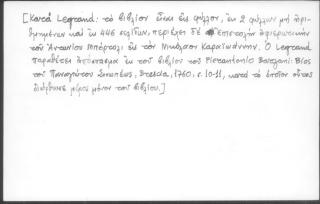 [Κατά Legrand: τό βιβλίον εἶναι εἰς φύλλον, ἐκ 2 φύλλων μή ἀριθ-
μημένων καί ἐκ 446 σελίδων, περιέχει δέ ἐπιστολήν ἀφιερωτικήν
τοῦ Ἀντωνίου Μπόρτολι εἰς τόν Νικόλαον Καραϊωάννην. Ὁ Legrand
παραθέτει ἀπόσπασμα ἐκ τοῦ βιβλίου τοῦ Pierantonio Barzani: Βίος
τοῦ Παναγιώτου Σινόπεως, Brescia, 1760, σ. 10-11, κατά τό ὁποῖον οὗτος
διώρθωσε μέρος μόνον τοῦ βιβλίου.]